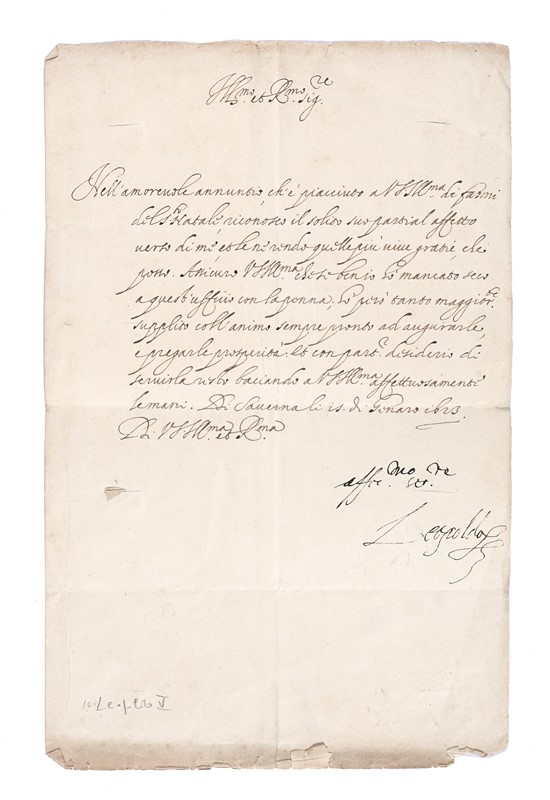 Ill.mo et R.mo Sig.re
Nell'amorevole annuntio, ch'è piaciuto a VS Ill.ma di farmi
del S. Natale, riconosco il solito suo partial affetto
verso di me, et le ne rendo quelle più vive gratie, che
posso. Assicuro VS Ill.ma che se ben io hò mancato seco
a quest'uffitio con la penna, hò però tanto maggior.te
supplito coll'animo sempre pronto ad augurarle,
e pregarle prosperità. Et con part.r desiderio di
servirla resto baciando a VS Ill.ma affettuosamente
le mani. Di Saverna li 15. di Genaro 1623
Di VS Ill.ma et R.ma
aff.mo
Leopoldo